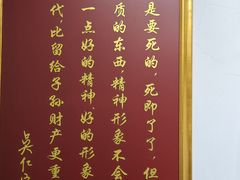 是要死的,死即了了,但
质的东西,精神形象不会
一点好的精神,好的形象
代,比留给子孙财产更重
吴仁